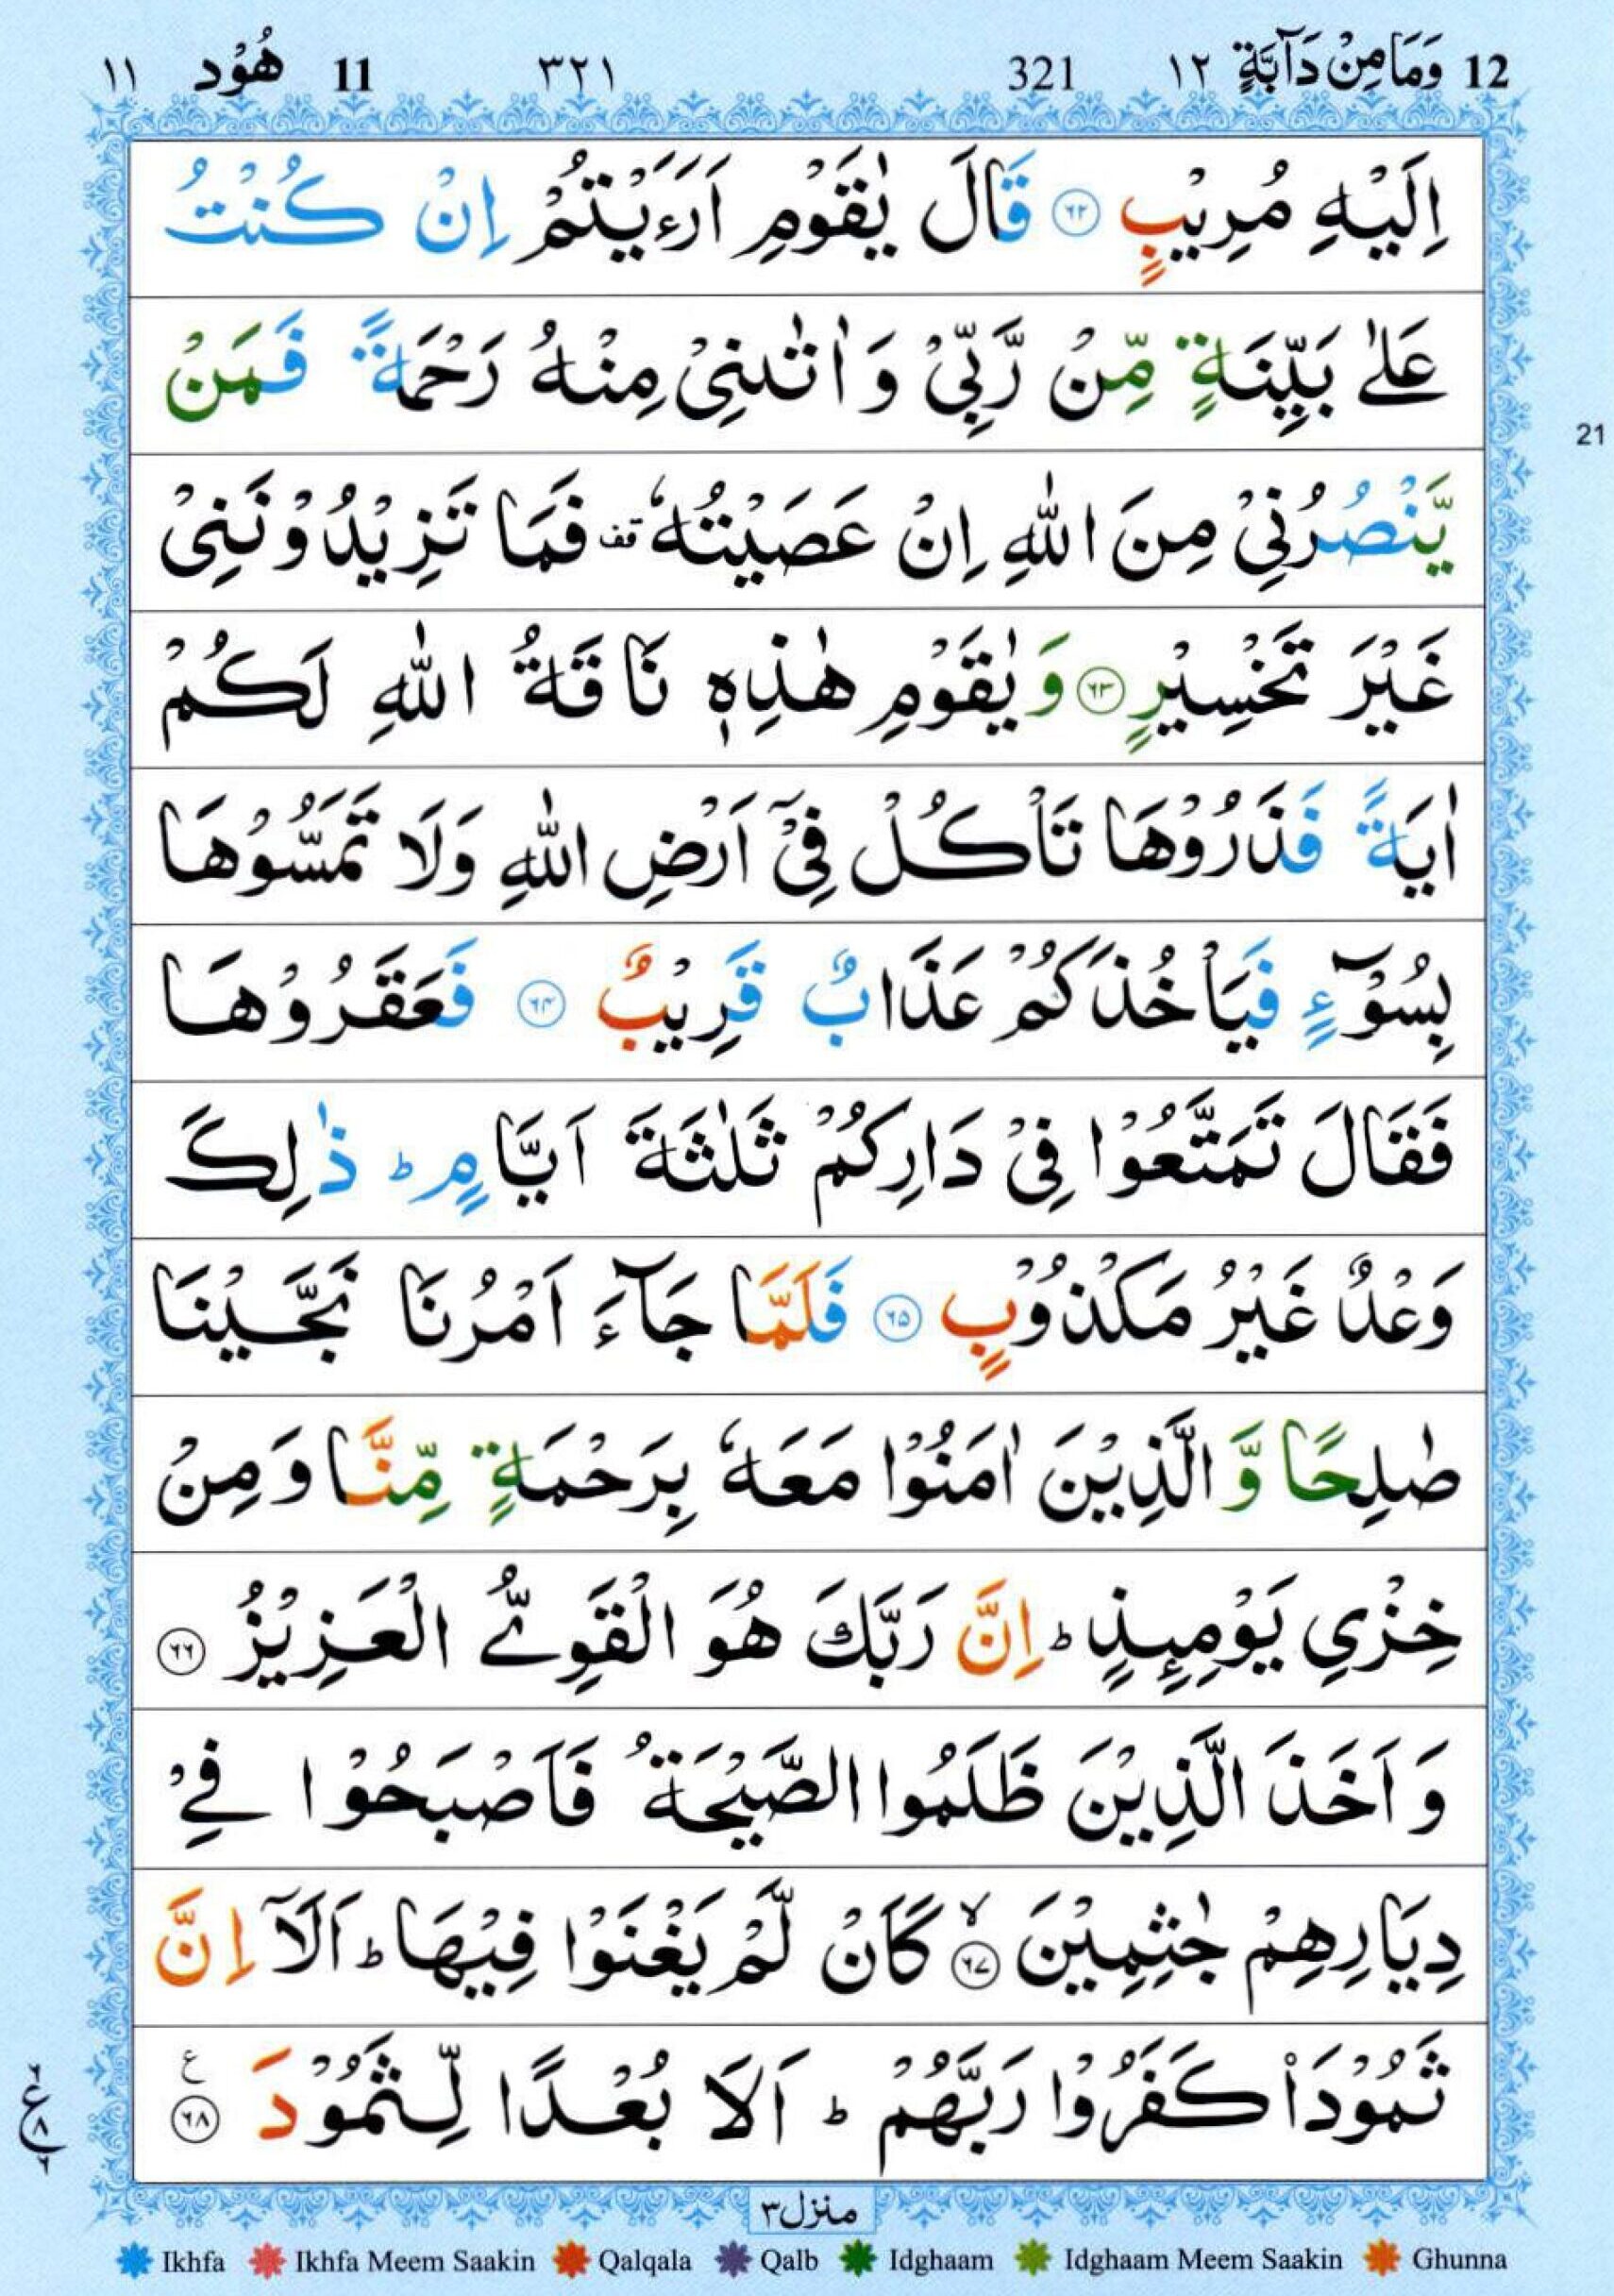 12 وَمَا مِنْ دَآبَّةٍ ١٢ 321 ٣٢١ 11 هُوْد ١١
اِلَيْهِ مُرِيْبٍ ۶۲ قَالَ يٰقَوْمِ اَرَءَيْتُمْ اِنْ كُنْتُ
عَلٰى بَيِّنَةٍ مِّنْ رَّبِّىْ وَ اٰتٰىنِىْ مِنْهُ رَحْمَةً فَمَنْ
21
يَّنْصُرُنِىْ مِنَ اللّٰهِ اِنْ عَصَيْتُهٗ قف فَمَا تَزِيْدُوْنَنِىْ
غَيْرَ تَخْسِيْرٍ ۶۳ وَ يٰقَوْمِ هٰذِهٖ نَاقَةُ اللّٰهِ لَكُمْ
اٰيَةً فَذَرُوْهَا تَاْكُلْ فِىْۤ اَرْضِ اللّٰهِ وَلَا تَمَسُّوْهَا
بِسُوْٓءٍ فَيَاْخُذَكُمْ عَذَابٌ قَرِيْبٌ ۶۴ فَعَقَرُوْهَا
فَقَالَ تَمَتَّعُوْا فِىْ دَارِكُمْ ثَلٰثَةَ اَيَّامٍ ؕ ذٰلِكَ
وَعْدٌ غَيْرُ مَكْذُوْبٍ ۶۵ فَلَمَّا جَآءَ اَمْرُنَا نَجَّيْنَا
صٰلِحًا وَّ الَّذِيْنَ اٰمَنُوْا مَعَهٗ بِرَحْمَةٍ مِّنَّا وَ مِنْ
خِزْىِ يَوْمِئِذٍ ؕ اِنَّ رَبَّكَ هُوَ الْقَوِىُّ الْعَزِيْزُ ۶۶
وَ اَخَذَ الَّذِيْنَ ظَلَمُوا الصَّيْحَةُ فَاَصْبَحُوْا فِىْ
دِيَارِهِمْ جٰثِمِيْنَ ۙ ۶۷ كَاَنْ لَّمْ يَغْنَوْا فِيْهَا ؕ اَلَاۤ اِنَّ
ثَمُوْدَا۟ كَفَرُوْا رَبَّهُمْ ؕ اَلَا بُعْدًا لِّثَمُوْدَ ع ۶۸
۲ ع ۸ ۶
منزل ۳
Ikhfa Ikhfa Meem Saakin Qalqala Qalb Idghaam Idghaam Meem Saakin Ghunna